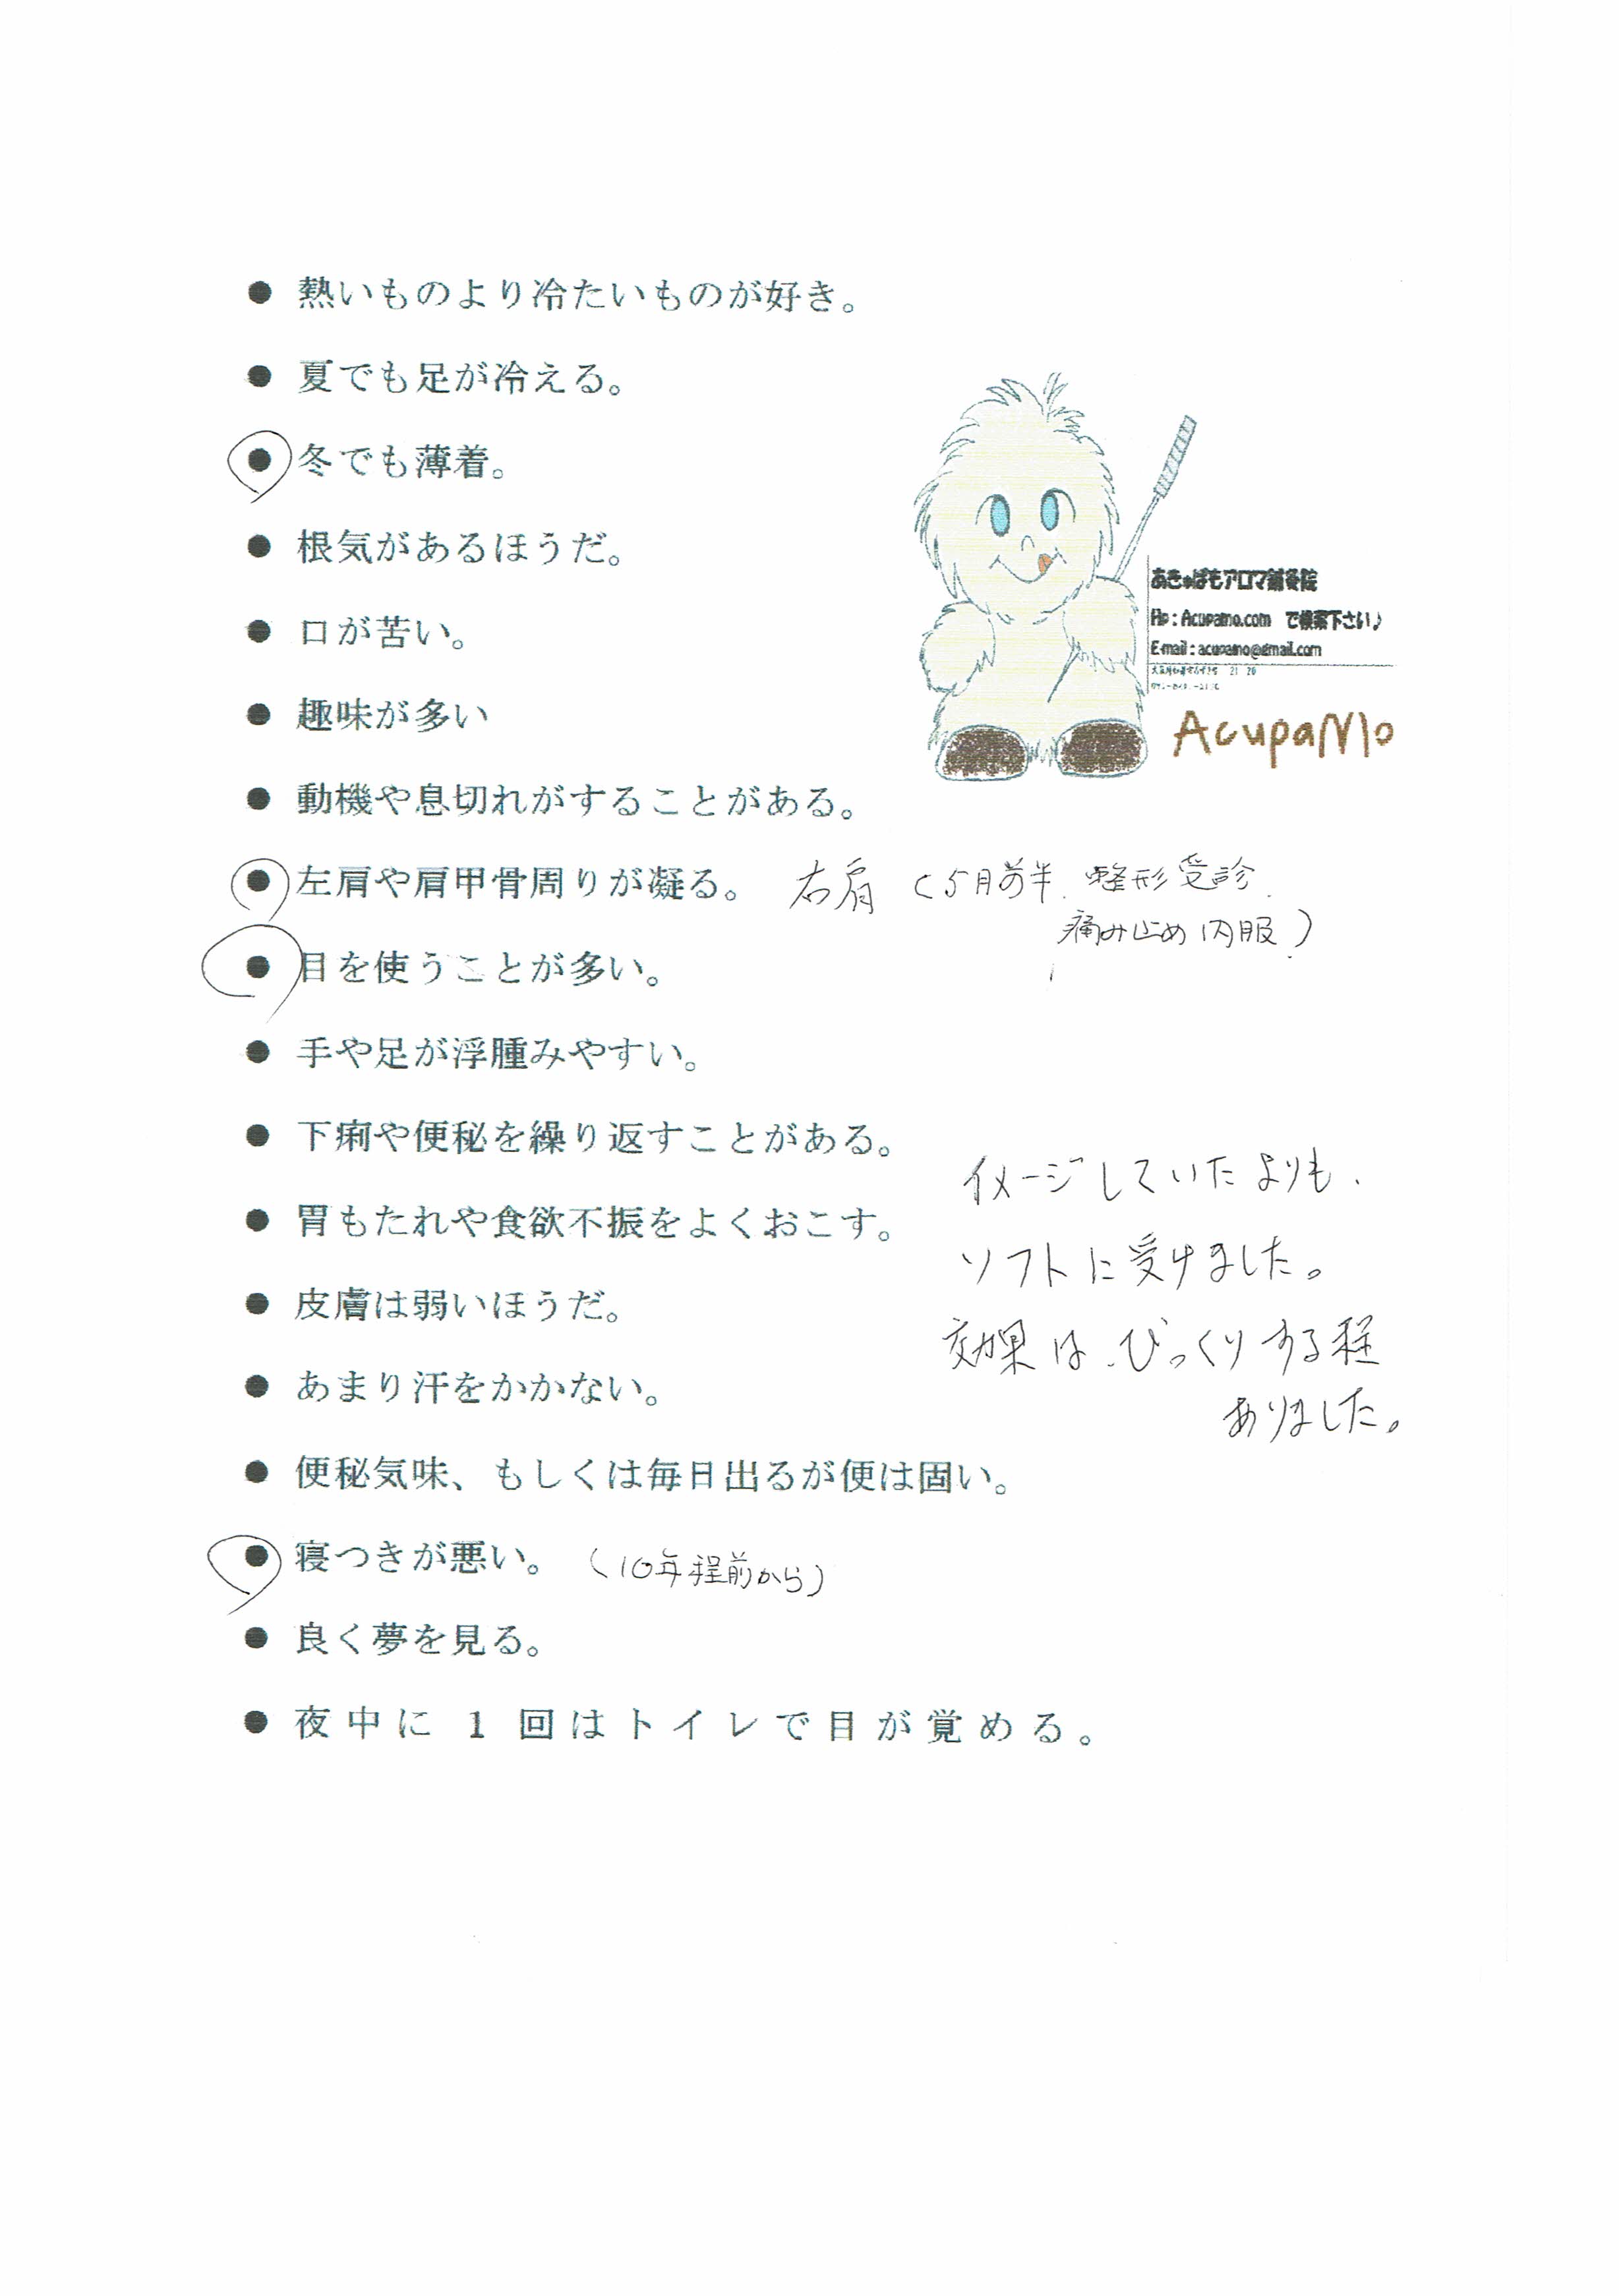 ● 熱いものより冷たいものが好き。
● 夏でも足が冷える。
● 冬でも薄着。
● 根気があるほうだ。
● 口が苦い。
● 趣味が多い
● 動機や息切れがすることがある。
あきゅぱもアロマ鍼灸院
Hp : Acupamo.com で検索下さい♪
E-mail : acupamo@gmail.com
AcupaMo
● 左肩や肩甲骨周りが凝る。 右肩 (5月前半、整形受診、
痛み止め内服)
● 目を使うことが多い。
● 手や足が浮腫みやすい。
● 下痢や便秘を繰り返すことがある。
● 胃もたれや食欲不振をよくおこす。
● 皮膚は弱いほうだ。
● あまり汗をかかない。
● 便秘気味、もしくは毎日出るが便は固い。
イメージしていたよりも、
ソフトに受けました。
効果は、びっくりする程
ありました。
● 寝つきが悪い。 (10年程前から)
● 良く夢を見る。
● 夜中に 1 回はトイレで目が覚める。